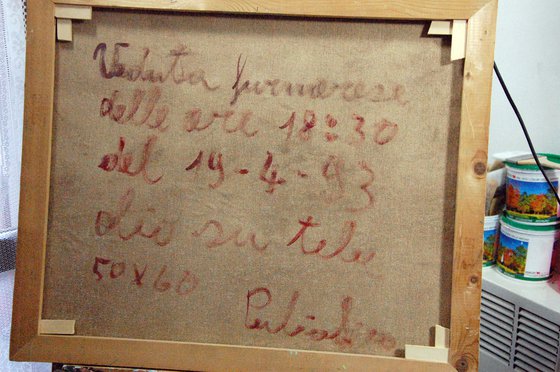 Veduta furnarese
delle ore 18:30
del 19-4-93
olio su tela
50x60